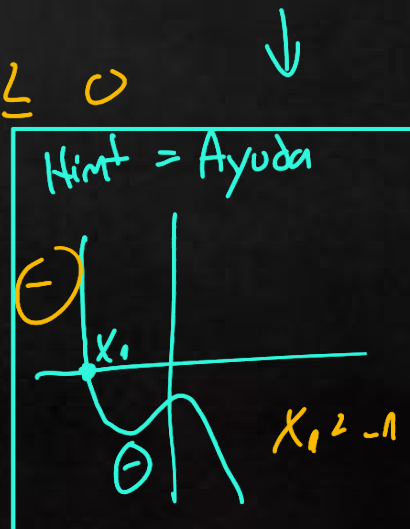 ≤ 0
Hint = Ayuda
-
X₁
-